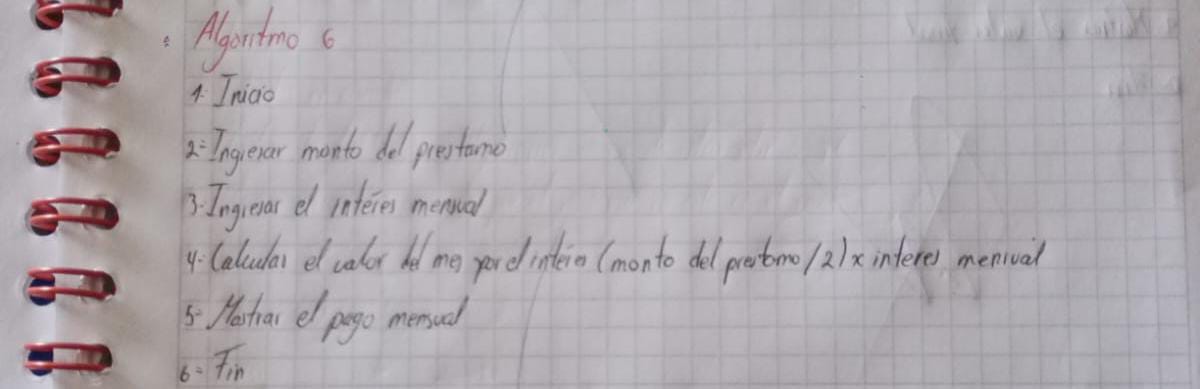 Algoritmo 6
1- Inicio
2- Ingresar monto del prestamo
3- Ingresar el interes mensual
4- Calcular el valor del mes por el interes (monto del prestamo/2) x interes mensual
5- Mostrar el pago mensual
6- Fin